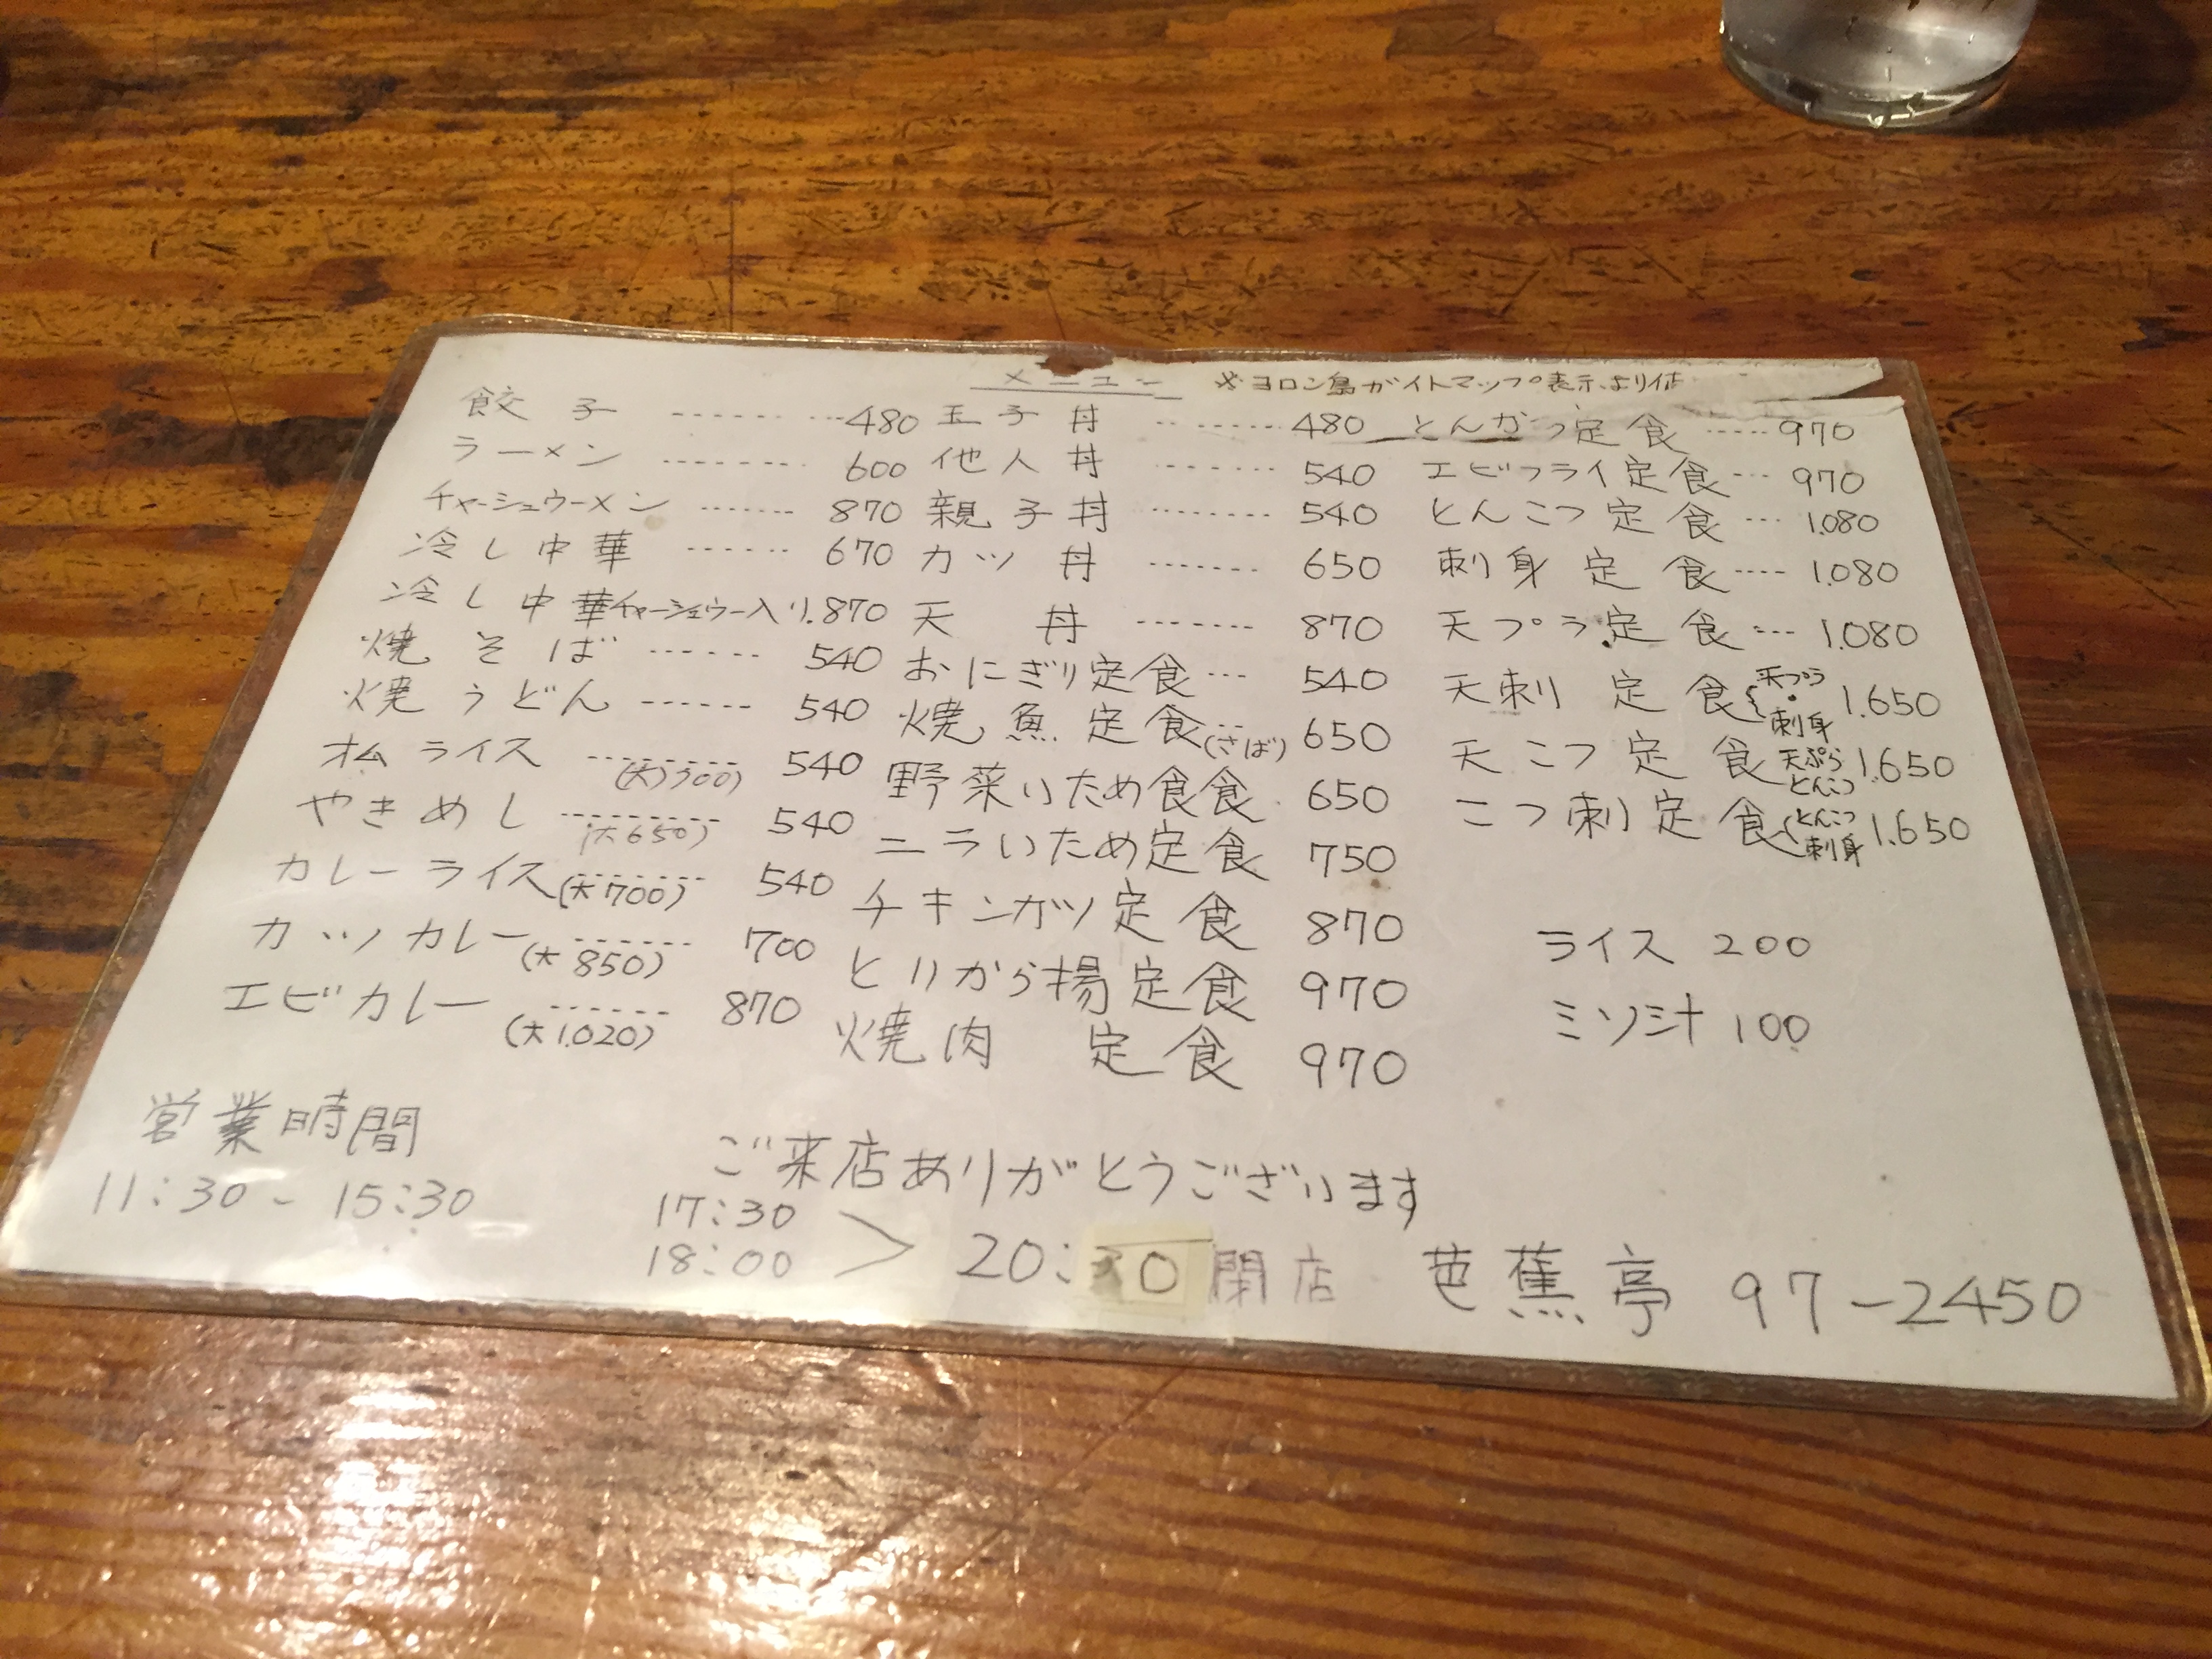 メニュー ※ヨロン島ガイトマップ表示より
餃子 480
ラーメン 600
チャーシュウーメン 870
冷し中華 670
冷し中華チャーシュウー入り.870
焼そば 540
焼うどん 540
オムライス (大) 540
やきめし (大650) 540
カレーライス (大700) 540
カツカレー (大850) 700
エビカレー (大1.020) 870
玉子丼 480
他人丼 540
親子丼 540
カツ丼 650
天丼 870
おにぎり定食 540
焼魚定食(さば) 650
野菜いため食食 650
ニラいため定食 750
チキンカツ定食 870
とりから揚定食 970
焼肉定食 970
とんかつ定食 970
エビフライ定食 970
とんこつ定食 1.080
刺身定食 1.080
天プラ定食 1.080
天刺定食{天プラ・刺身 1.650
天こつ定食 天ぷら とんこつ 1.650
こつ刺定食{とんこつ 刺身 1.650
ライス 200
ミソ汁 100
営業時間
11:30~15:30
ご来店ありがとうございます
17:30
18:00 > 20:30閉店
芭蕉亭 97-2450